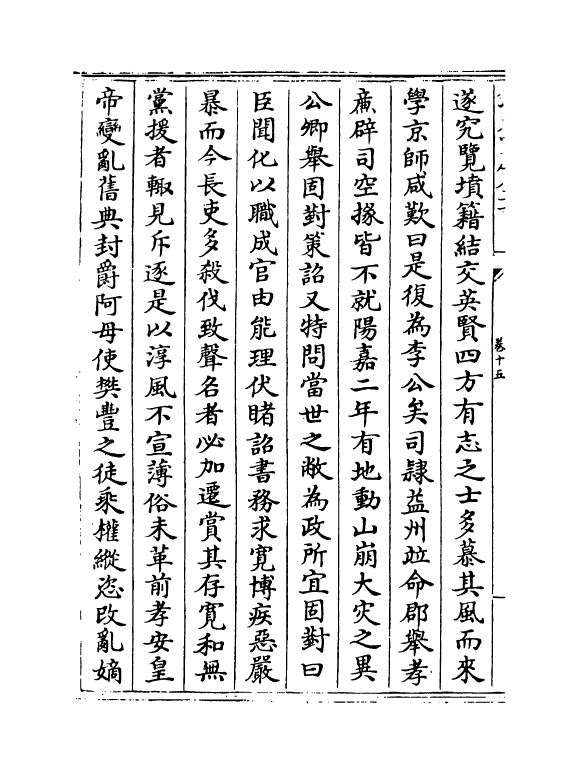 遂究覽墳籍結交英賢四方有志之士多慕其風而來
學京師咸歎曰是復為李公矣司隸益州竝命郡舉孝
亷辟司空掾皆不就陽嘉二年有地動山崩大灾之異
公卿舉固對策詔又特問當世之敝為政所宜固對曰
臣聞化以職成官由能理伏睹詔書務求寛博疾惡嚴
暴而今長吏多殺伐致聲名者必加遷賞其存寛和無
黨援者輙見斥逐是以淳風不宣薄俗未革前孝安皇
帝變亂舊典封爵阿母使樊豐之徒乘權縱恣改亂嫡
卷十五